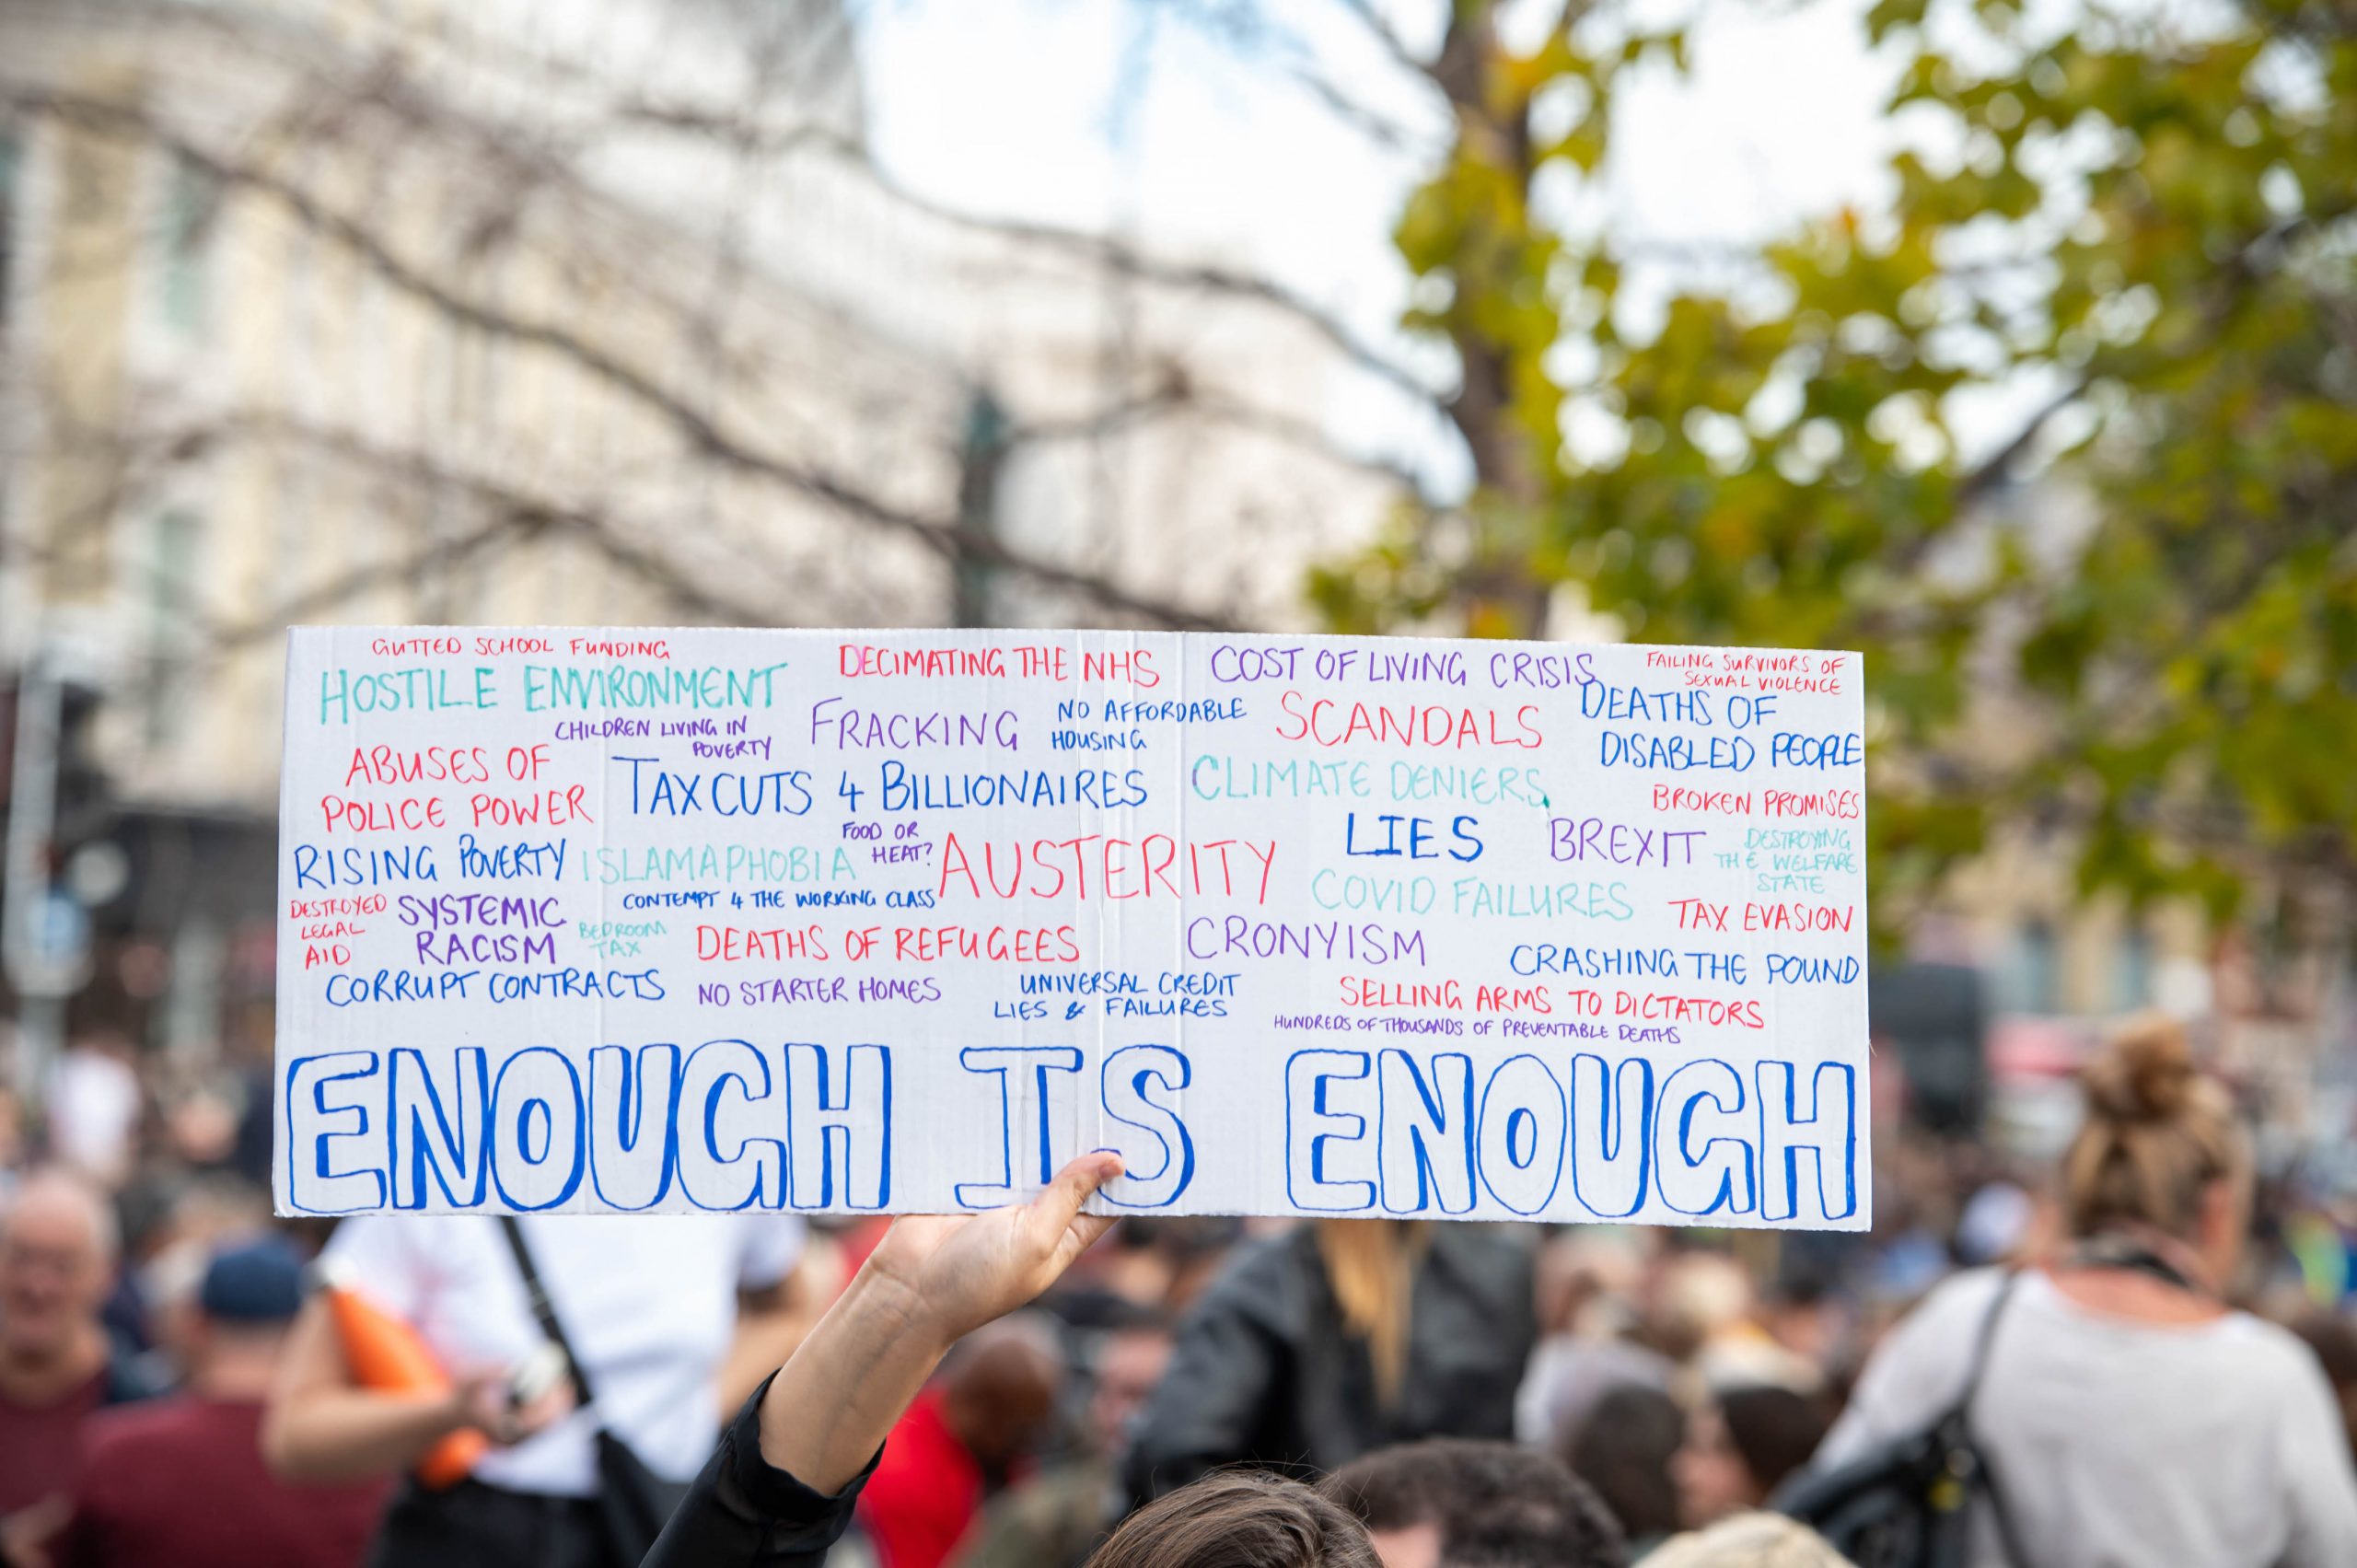 GUTTED SCHOOL FUNDING
HOSTILE ENVIRONMENT
CHILDREN LIVING IN
POVERTY
DECIMATING THE NHS
FRACKING
NO AFFORDABLE
HOUSING
COST OF LIVING CRISIS
SCANDALS
FAILING SURVIVORS OF
SEXUAL VIOLENCE
DEATHS OF
DISABLED PEOPLE
ABUSES OF
POLICE POWER
TAX CUTS 4 BILLIONAIRES
CLIMATE DENIERS
BROKEN PROMISES
RISING POVERTY
ISLAMAPHOBIA
FOOD OR
HEAT?
AUSTERITY
LIES
BREXIT
DESTROYING
THE WELFARE
STATE
CONTEMPT 4 THE WORKING CLASS
COVID FAILURES
DESTROYED
LEGAL
AID
SYSTEMIC
RACISM
BEDROOM
TAX
DEATHS OF REFUGEES
CRONYISM
TAX EVASION
CRASHING THE POUND
CORRUPT CONTRACTS
NO STARTER HOMES
UNIVERSAL CREDIT
LIES & FAILURES
SELLING ARMS TO DICTATORS
HUNDREDS OF THOUSANDS OF PREVENTABLE DEATHS
ENOUGH IS ENOUGH